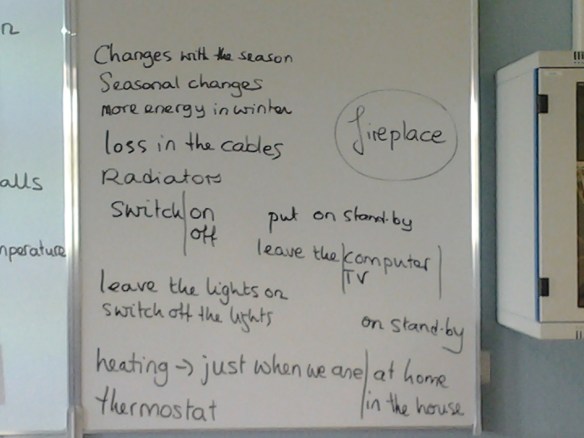 alls
nperature
Changes with the season
Seasonal changes
more energy in winter
loss in the cables
Radiators
fireplace
switch on
off
put on stand-by
leave the computer
TV
on stand-by
leave the lights on
switch off the lights
heating → just when we are at home
in the house
thermostat